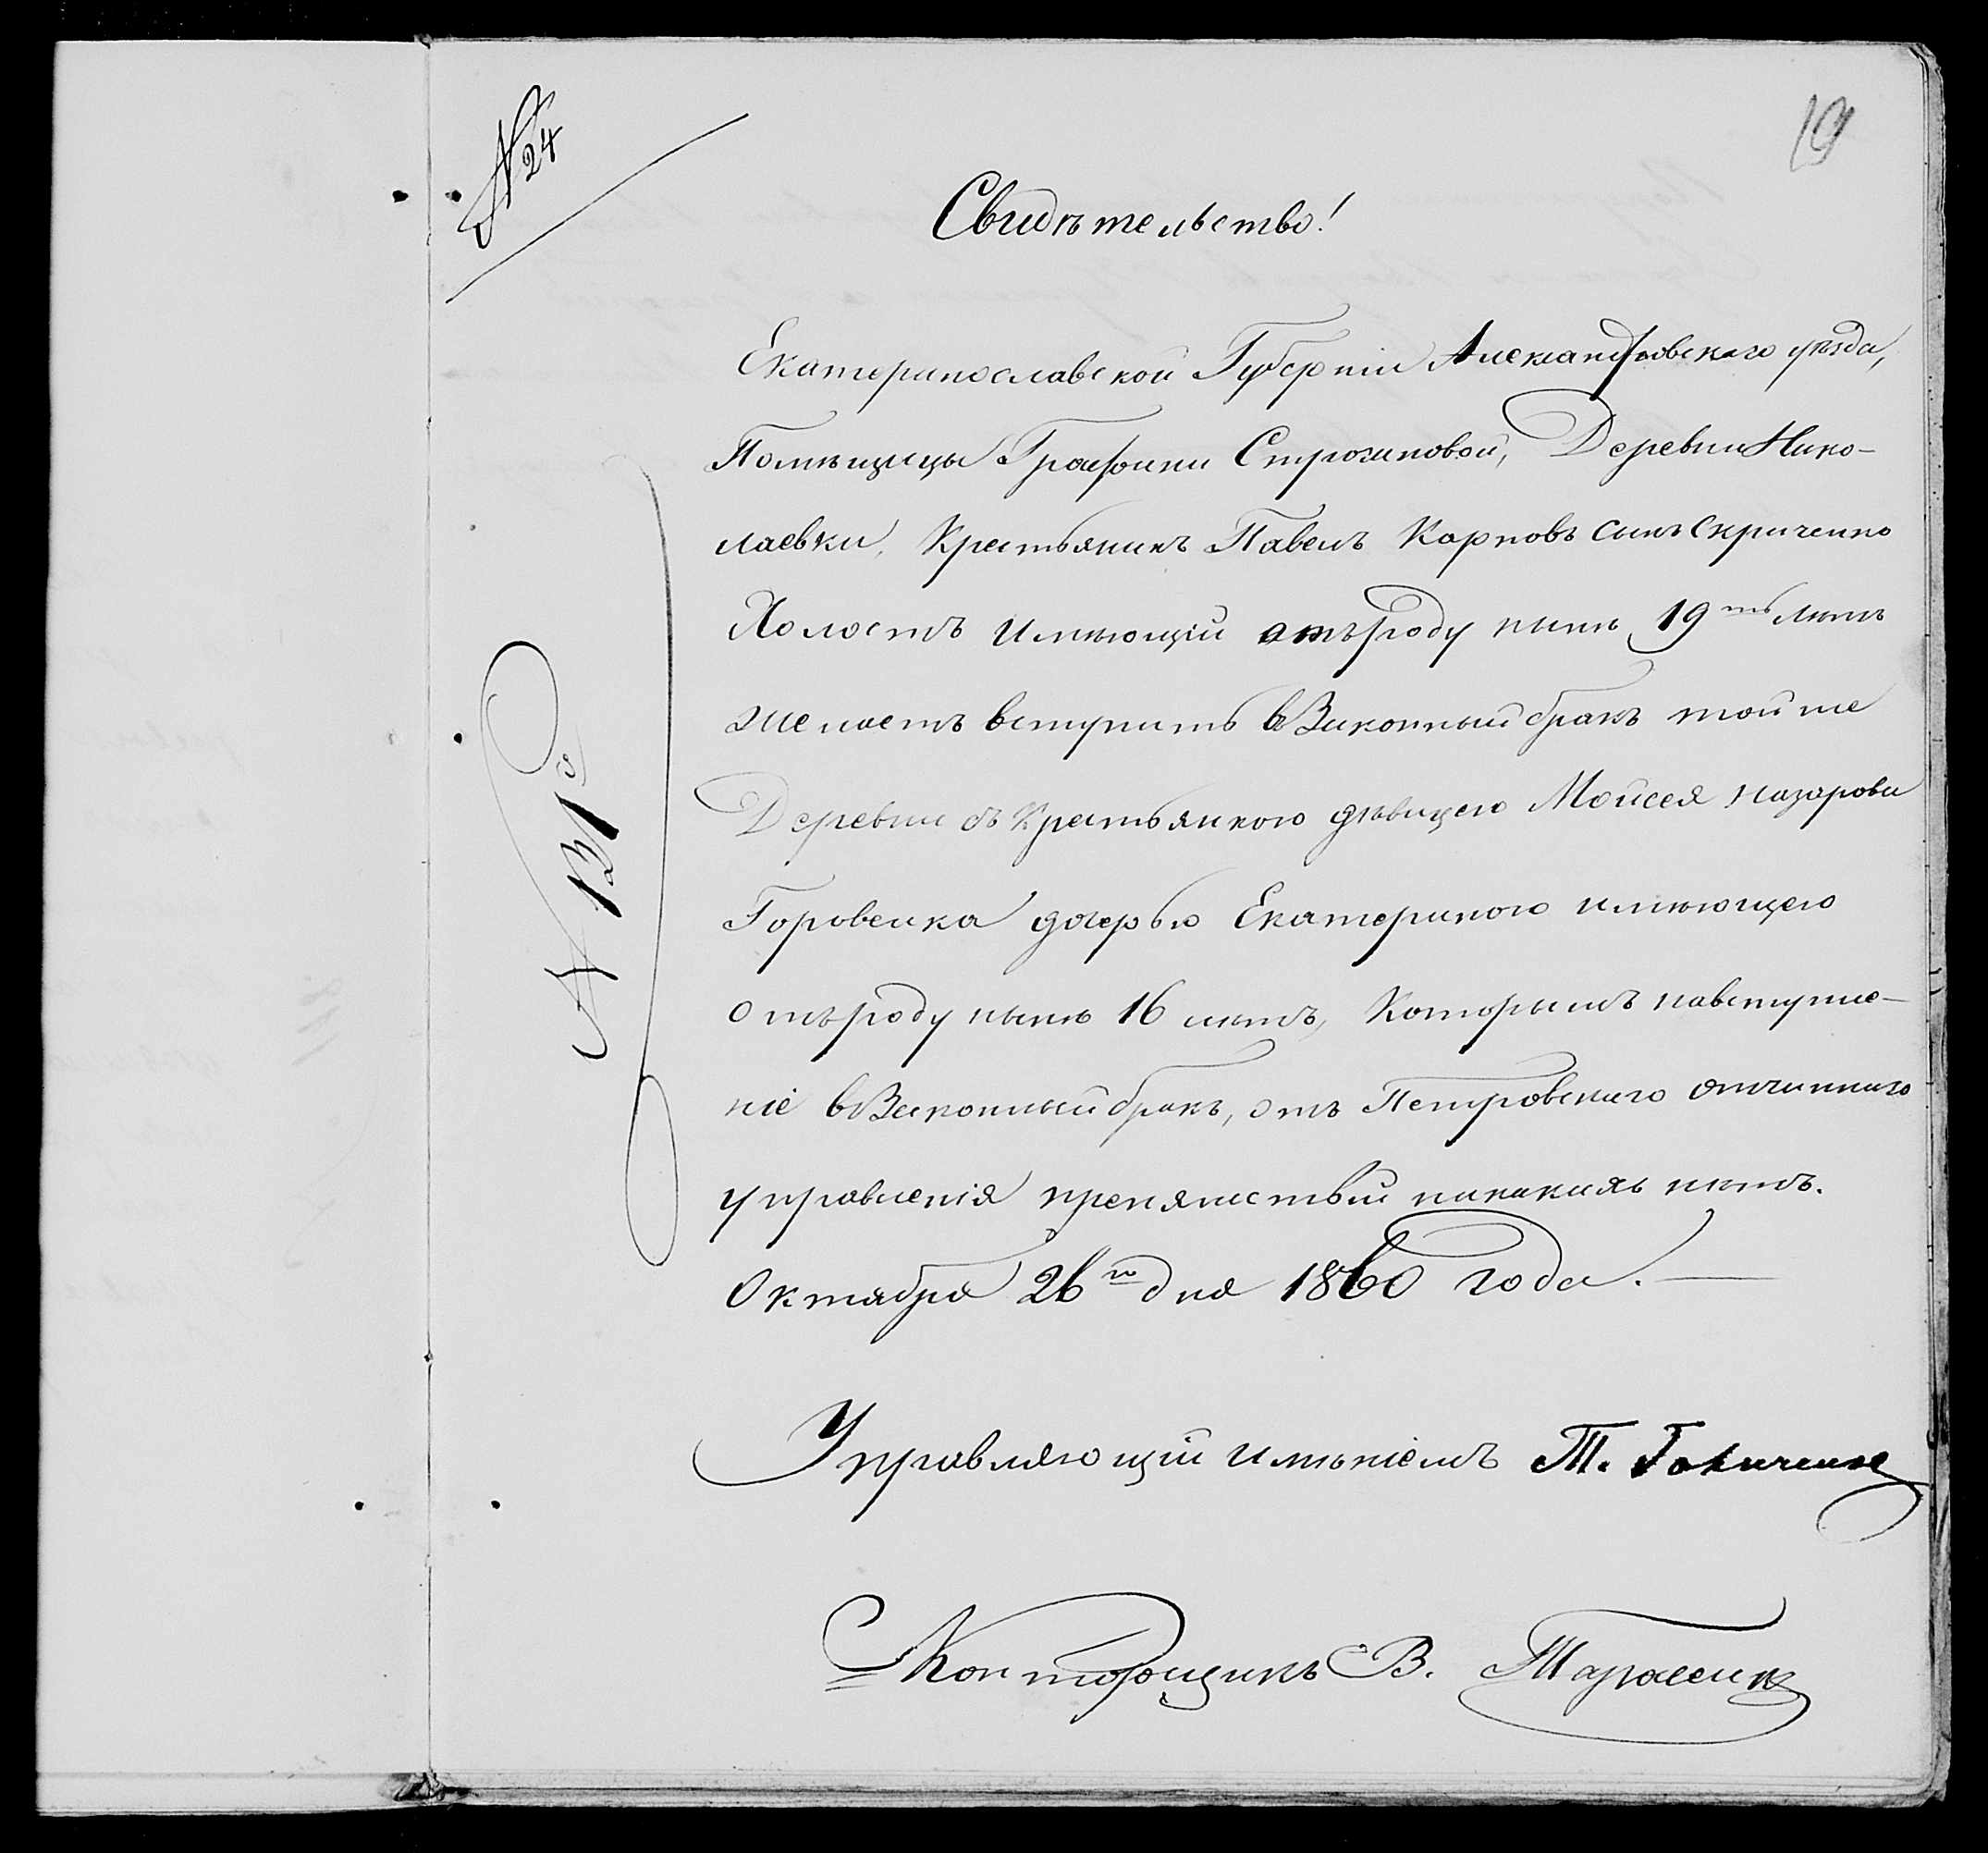 № 24
19
Свидѣтельство!
Екатеринославской Губерніи Александровскаго уѣзда,
Помѣщицы Графини Строгановой, Деревни Нико-
лаевки, Крестьянинъ Павелъ Карповъ сынъ Скриченко
Холостъ имѣющій отъ роду нынѣ 19ть лѣтъ
желаетъ вступить въ Законный бракъ той же
Деревни съ Крестьянкою дѣвицею Мойсея Назарова
Горовенка дочерью Екатериною имѣющею
отъ роду нынѣ 16 лѣтъ, Которымъ на вступле-
ніе въ Законный бракъ, отъ Петровскаго отчиннаго
управленія препятствій никакихъ нѣтъ.
Октября 26го дня 1860 года. —
№ 131
Управляющій имѣніемъ Т.
Конторщикъ В. Тарасенко